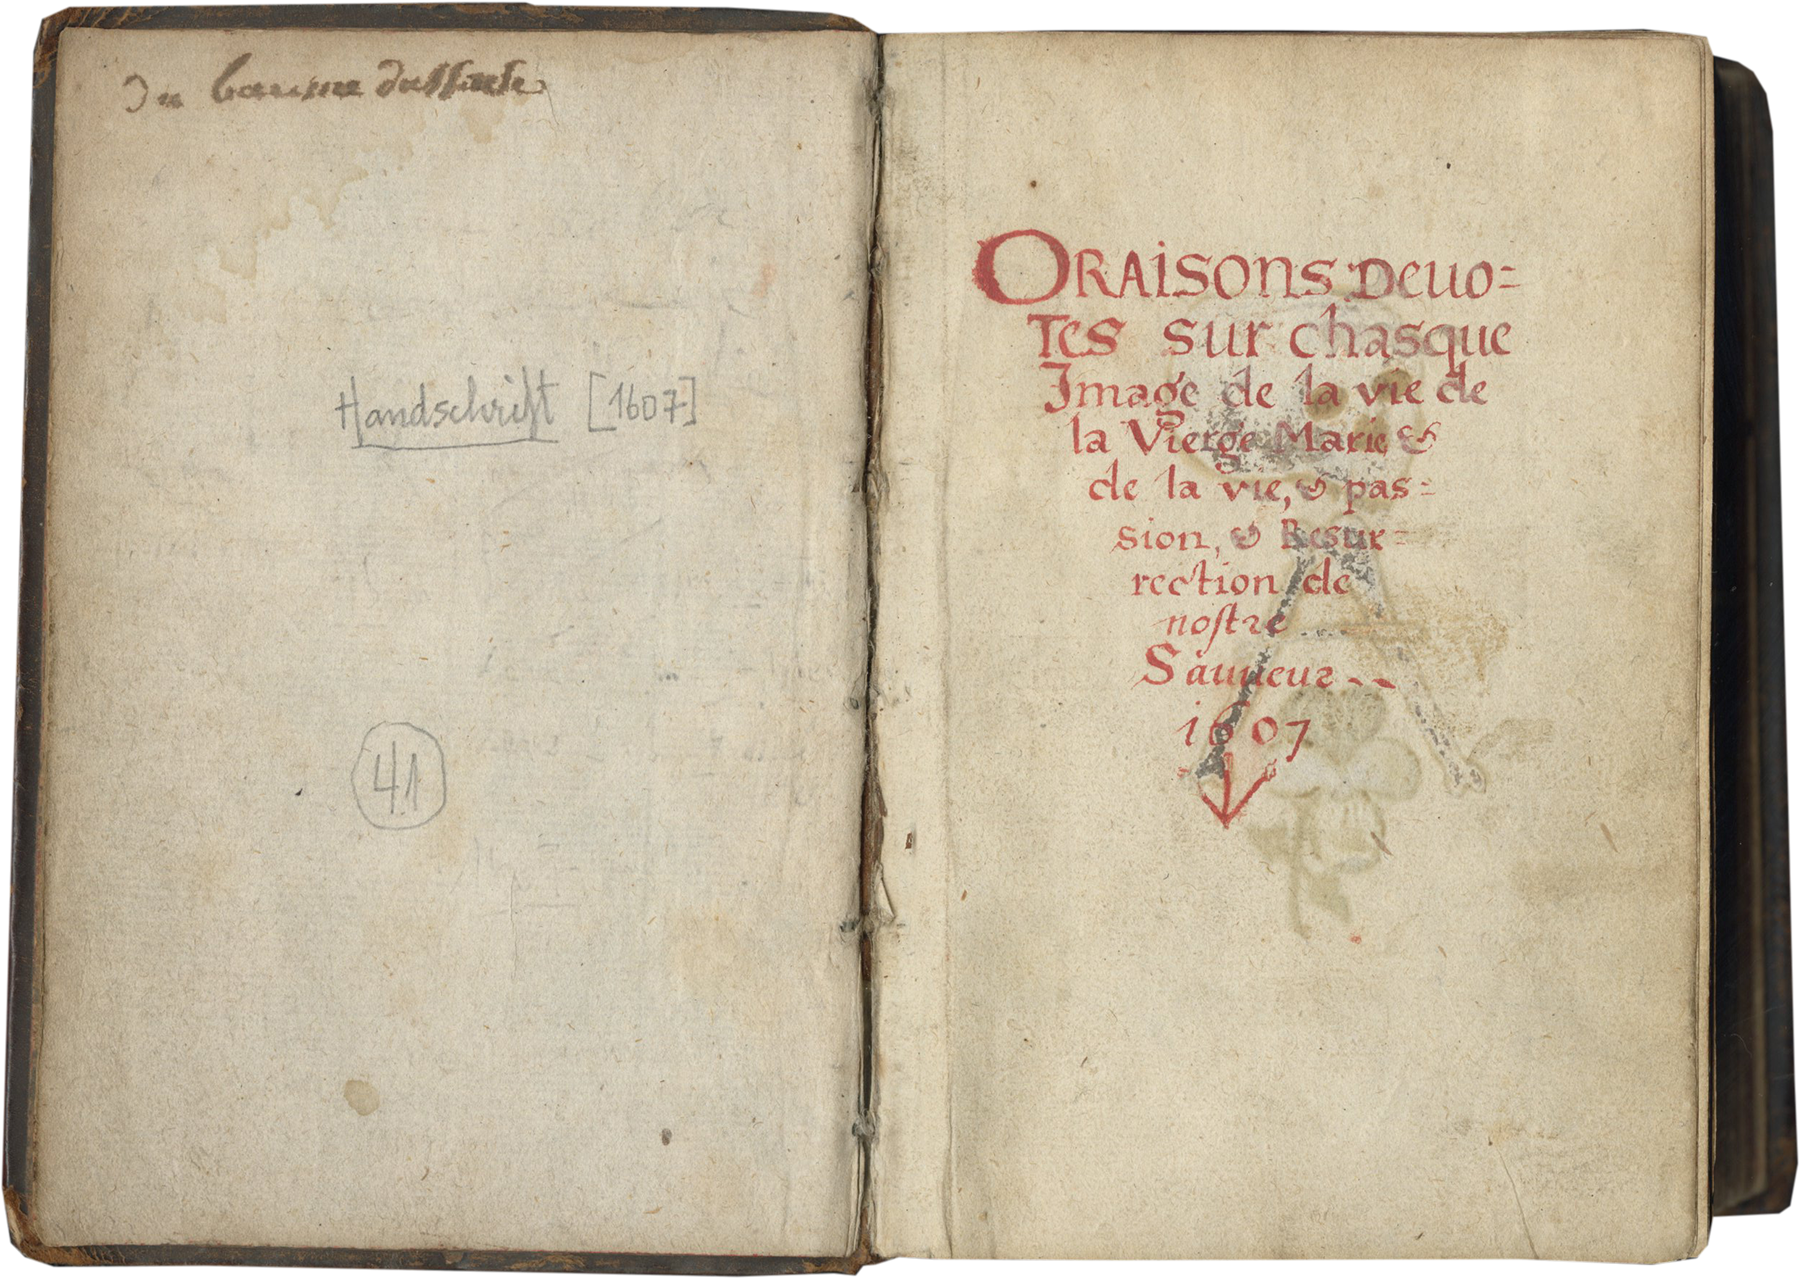 Du baume
Handschrift [1607]
41
Oraisons Deuo=
tes sur chasque
Image de la vie de
la Vierge Marie &
de la vie, & pas=
sion, & Resur=
rection de
noſtre
Sauueur
1607